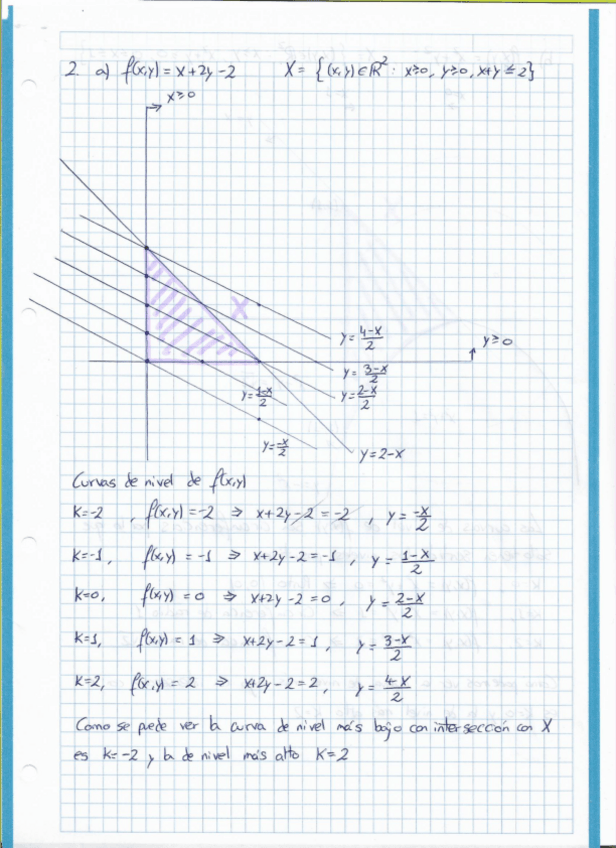 2. a) f(x,y) = x + 2y - 2    X = {(x,y) ∈ ℝ² : x≥0, y≥0, x+y ≤ 2}
x≥0
X
y = (4-x)/2
y≥0
y = (3-x)/2
y = (2-x)/2
y = (1-x)/2
y = -x/2
y = 2-x
Curvas de nivel de f(x,y)
K=-2 , f(x,y) = -2 ⇒ x+2y-2 = -2 , y = -x/2
K=-1, f(x,y) = -1 ⇒ x+2y-2 = -1 , y = (1-x)/2
K=0, f(x,y) = 0 ⇒ x+2y-2 = 0 , y = (2-x)/2
K=1, f(x,y) = 1 ⇒ x+2y-2 = 1 , y = (3-x)/2
K=2, f(x,y) = 2 ⇒ x+2y-2 = 2 , y = (4-x)/2
Como se pede ver la curva de nivel más bajo con intersección con X
es K=-2 y la de nivel más alto K=2